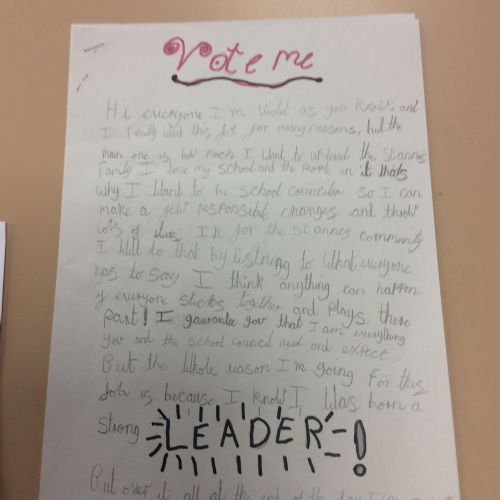 Vote me
Hi everyone I'm Violet as you know and
I really want this job for many reasons, but the
main one is how much I want to up-level the St annes
Family I love my school and the people in it thats
why I want to be school councilor so I can
make a few responsible changes and think
lots of ideas I'm for the st annes community
I will do that by listning to what everyone
has to say I think anything can happen
if everyone sticks together and plays there
part! I gaurantee you that I am everything
you and the school council need and exfect.
But the whole reason I'm going for this
Job is because I know I was born a
strong LEADER!
But over it all at the end of the day